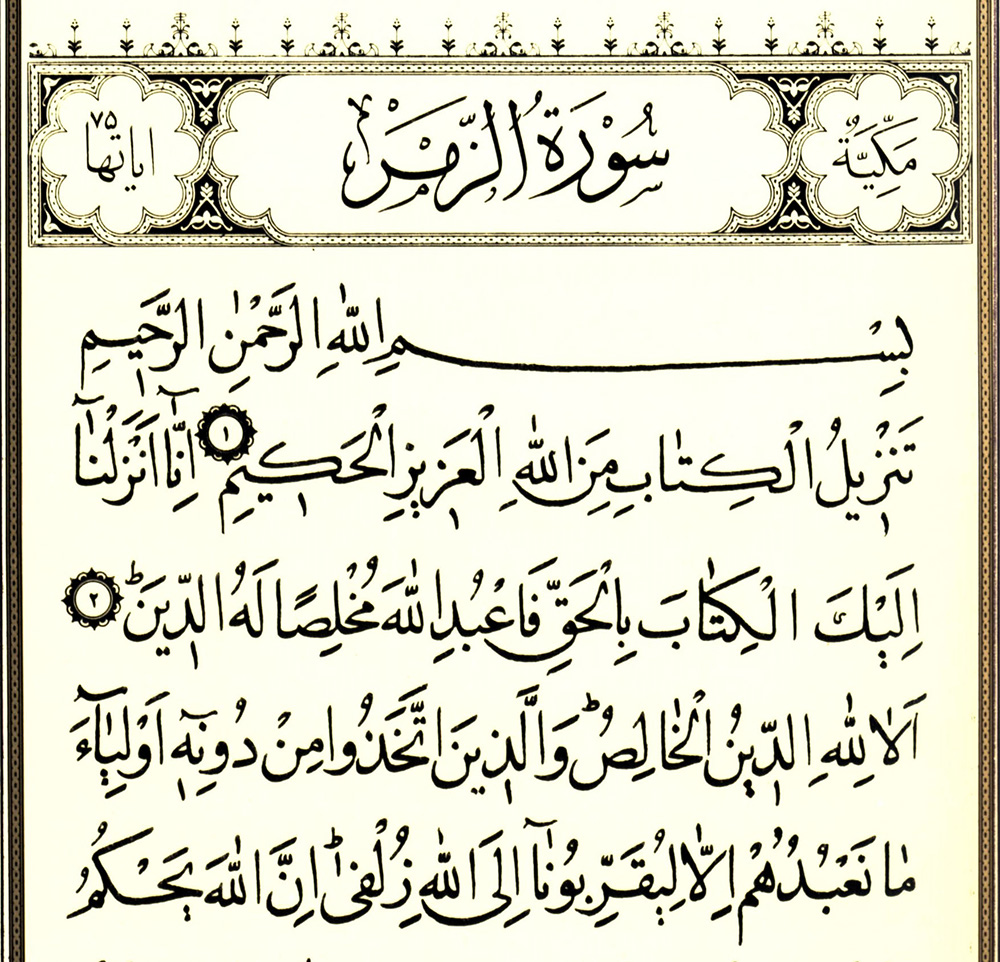 مَكِّيَّةٌ
سُوْرَةُ الزُّمَرْ
اياتها ٧٥
بِسْمِ اللّٰهِ الرَّحْمٰنِ الرَّحيمِ
تَنْزيلُ الْكِتٰابِ مِنَ اللّٰهِ الْعَزيزِ الْحَكيمِ ١ اِنّٰا اَنْزَلْنٰا
اِلَيْكَ الْكِتٰابَ بِالْحَقِّ فَاعْبُدِ اللّٰهَ مُخْلِصًا لَهُ الدّينَ ٢
اَلٰا لِلّٰهِ الدّينُ الْخٰالِصُ وَالَّذينَ اتَّخَذُوا مِنْ دُونِه اَوْلِيٰاءَ
مٰا نَعْبُدُهُمْ اِلّٰا لِيُقَرِّبُونٰا اِلَى اللّٰهِ زُلْفىٰ اِنَّ اللّٰهَ يَحْكُمُ